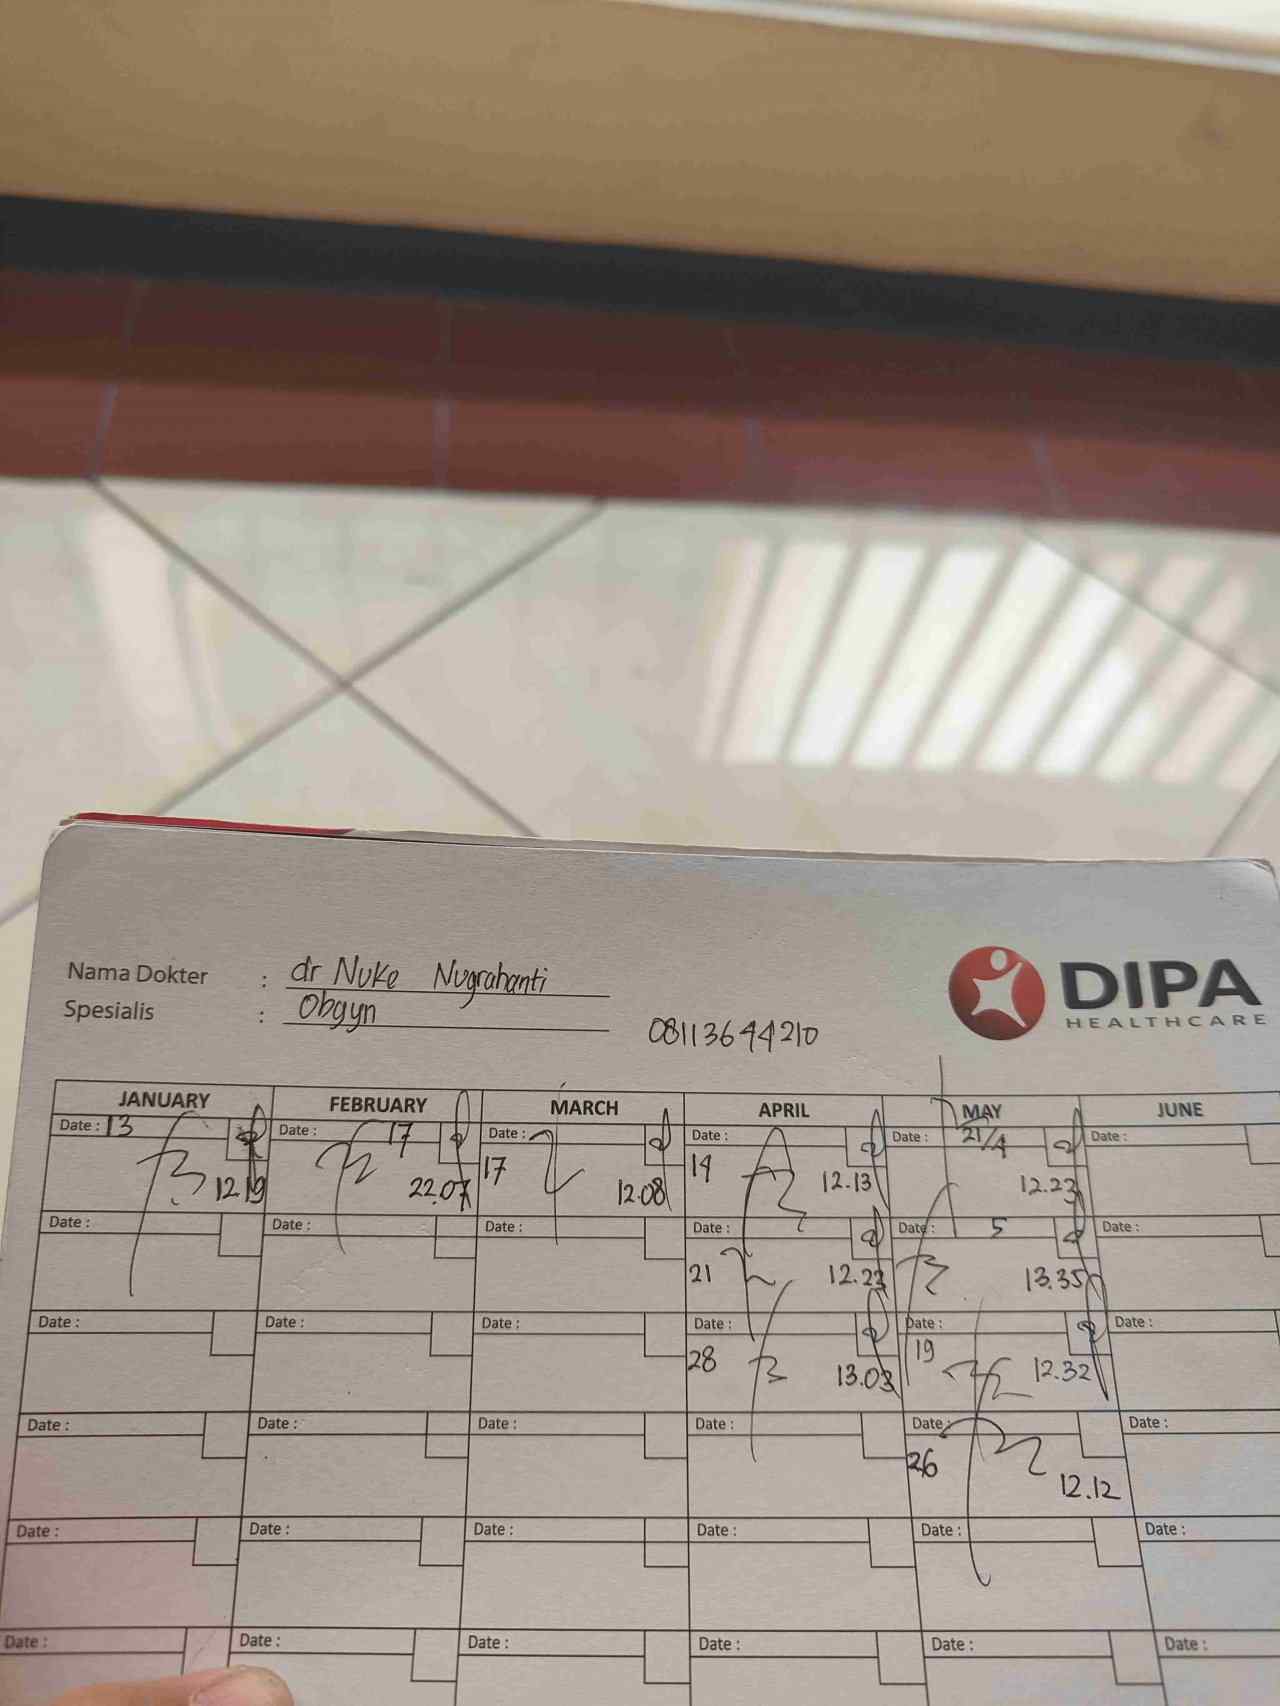 Nama Dokter : dr Nuke Nugrahanti
Spesialis : Obgyn
08113644210
DIPA
HEALTHCARE
JANUARY FEBRUARY MARCH APRIL MAY JUNE
Date : 13 Date : 17 Date : Date : Date : 21/4 Date :
17 14
12.19 22.07 12.08 12.13 12.23
Date : Date : Date : Date : Date : 5 Date :
21 12.23 13.35
Date : Date : Date : Date : Date : Date :
28 13.03 19 12.32
Date : Date : Date : Date : Date : Date :
26 12.12
Date : Date : Date : Date : Date : Date :
Date : Date : Date : Date : Date : Date :